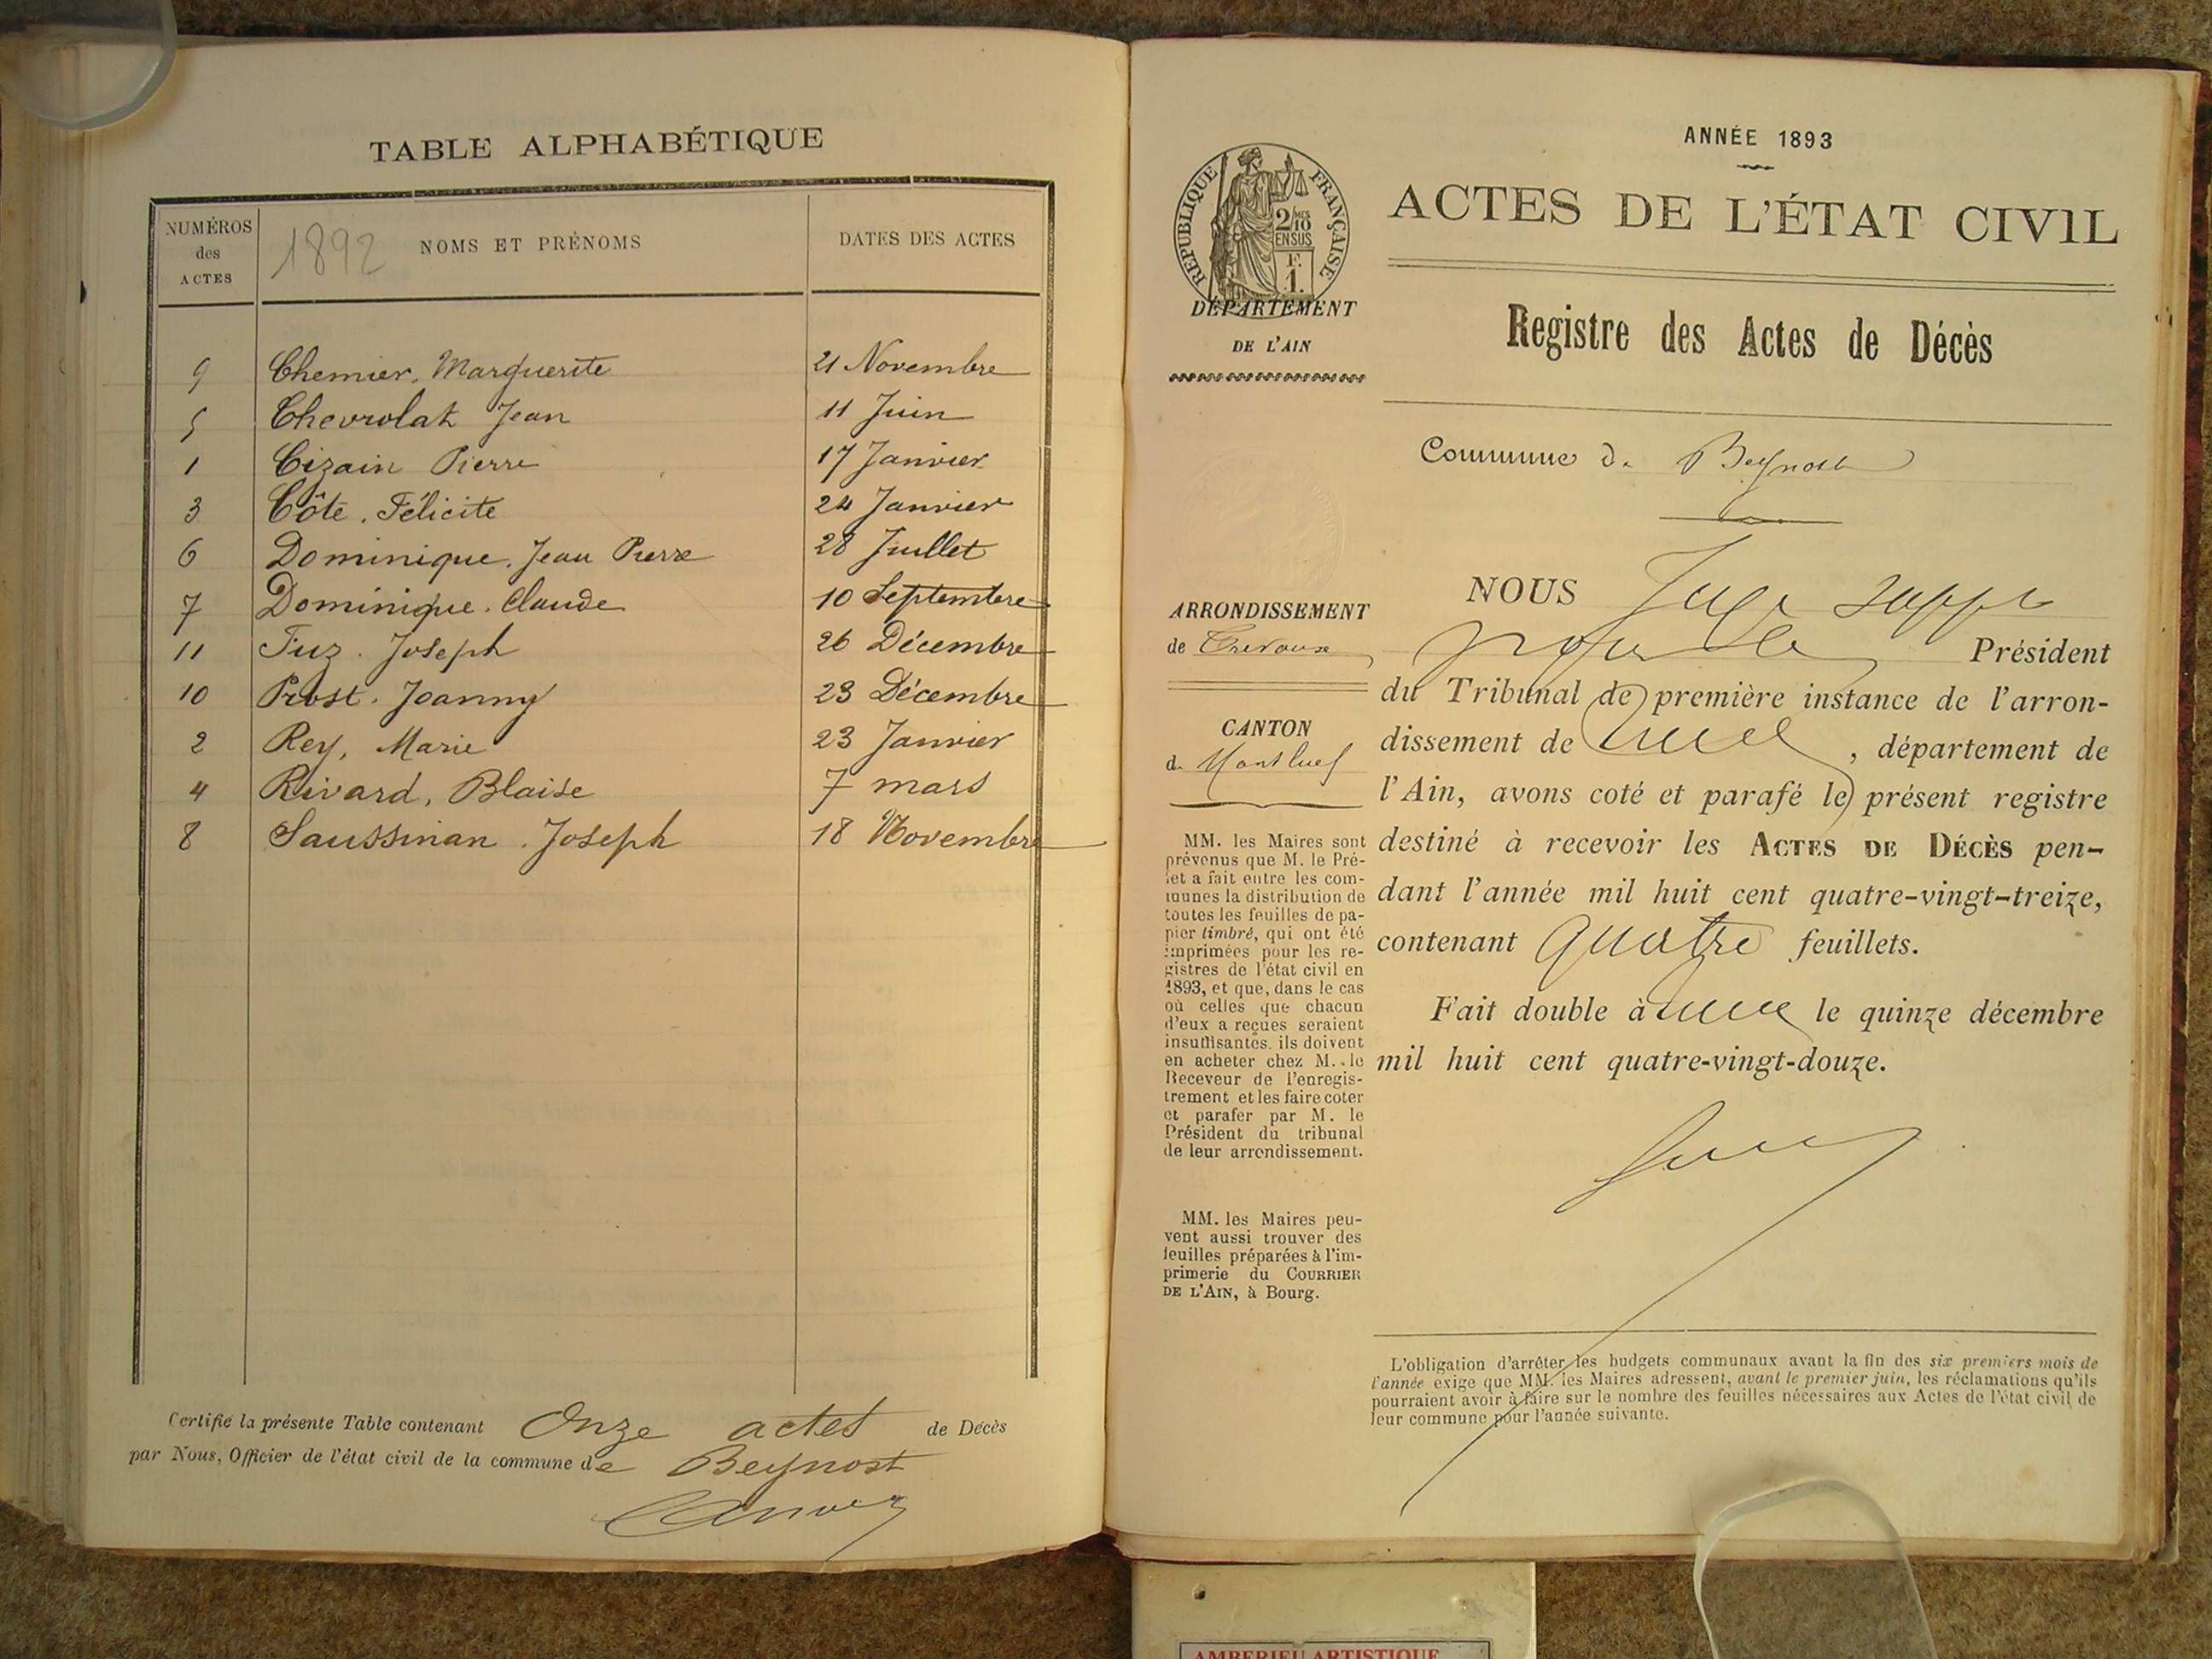 TABLE ALPHABÉTIQUE
NUMÉROS des ACTES
1892 NOMS ET PRÉNOMS
DATES DES ACTES
9 Chemier, Marguerite 21 Novembre
5 Chevrolat Jean 11 Juin
1 Cizain Pierre 17 Janvier
3 Côte, Félicité 24 Janvier
6 Dominique, Jean Pierre 28 Juillet
7 Dominique, Claude 10 Septembre
11 Fuz, Joseph 26 Décembre
10 Prost, Joanny 23 Décembre
2 Rey, Marie 23 Janvier
4 Rivard, Blaise 7 mars
8 Saussinan, Joseph 18 Novembre
Certifié la présente Table contenant Onze actes de Décès
par Nous, Officier de l'état civil de la commune de Beynost
ANNÉE 1893
RÉPUBLIQUE FRANÇAISE
2/10 MES
EN SUS
F.
1.
ACTES DE L'ÉTAT CIVIL
DÉPARTEMENT
DE L'AIN
Registre des Actes de Décès
Commune de Beynost
ARRONDISSEMENT
de Trévoux
CANTON
de Montluel
MM. les Maires sont
prévenus que M. le Pré-
fet a fait entre les com-
munes la distribution de
toutes les feuilles de pa-
pier timbré, qui ont été
imprimées pour les re-
gistres de l'état civil en
1893, et que, dans le cas
où celles que chacun
d'eux a reçues seraient
insuffisantes, ils doivent
en acheter chez M. le
Receveur de l'enregis-
trement et les faire coter
et parafer par M. le
Président du tribunal
de leur arrondissement.
MM. les Maires peu-
vent aussi trouver des
feuilles préparées à l'im-
primerie du COURRIER
DE L'AIN, à Bourg.
NOUS Juge supp
pour le Président
du Tribunal de première instance de l'arron-
dissement de , département de
l'Ain, avons coté et parafé le présent registre
destiné à recevoir les ACTES DE DÉCÈS pen-
dant l'année mil huit cent quatre-vingt-treize,
contenant quatre feuillets.
Fait double à le quinze décembre
mil huit cent quatre-vingt-douze.
L'obligation d'arrêter les budgets communaux avant la fin des six premiers mois de
l'année exige que MM. les Maires adressent, avant le premier juin, les réclamations qu'ils
pourraient avoir à faire sur le nombre des feuilles nécessaires aux Actes de l'état civil de
leur commune pour l'année suivante.
AMBERIEU ARTISTIQUE